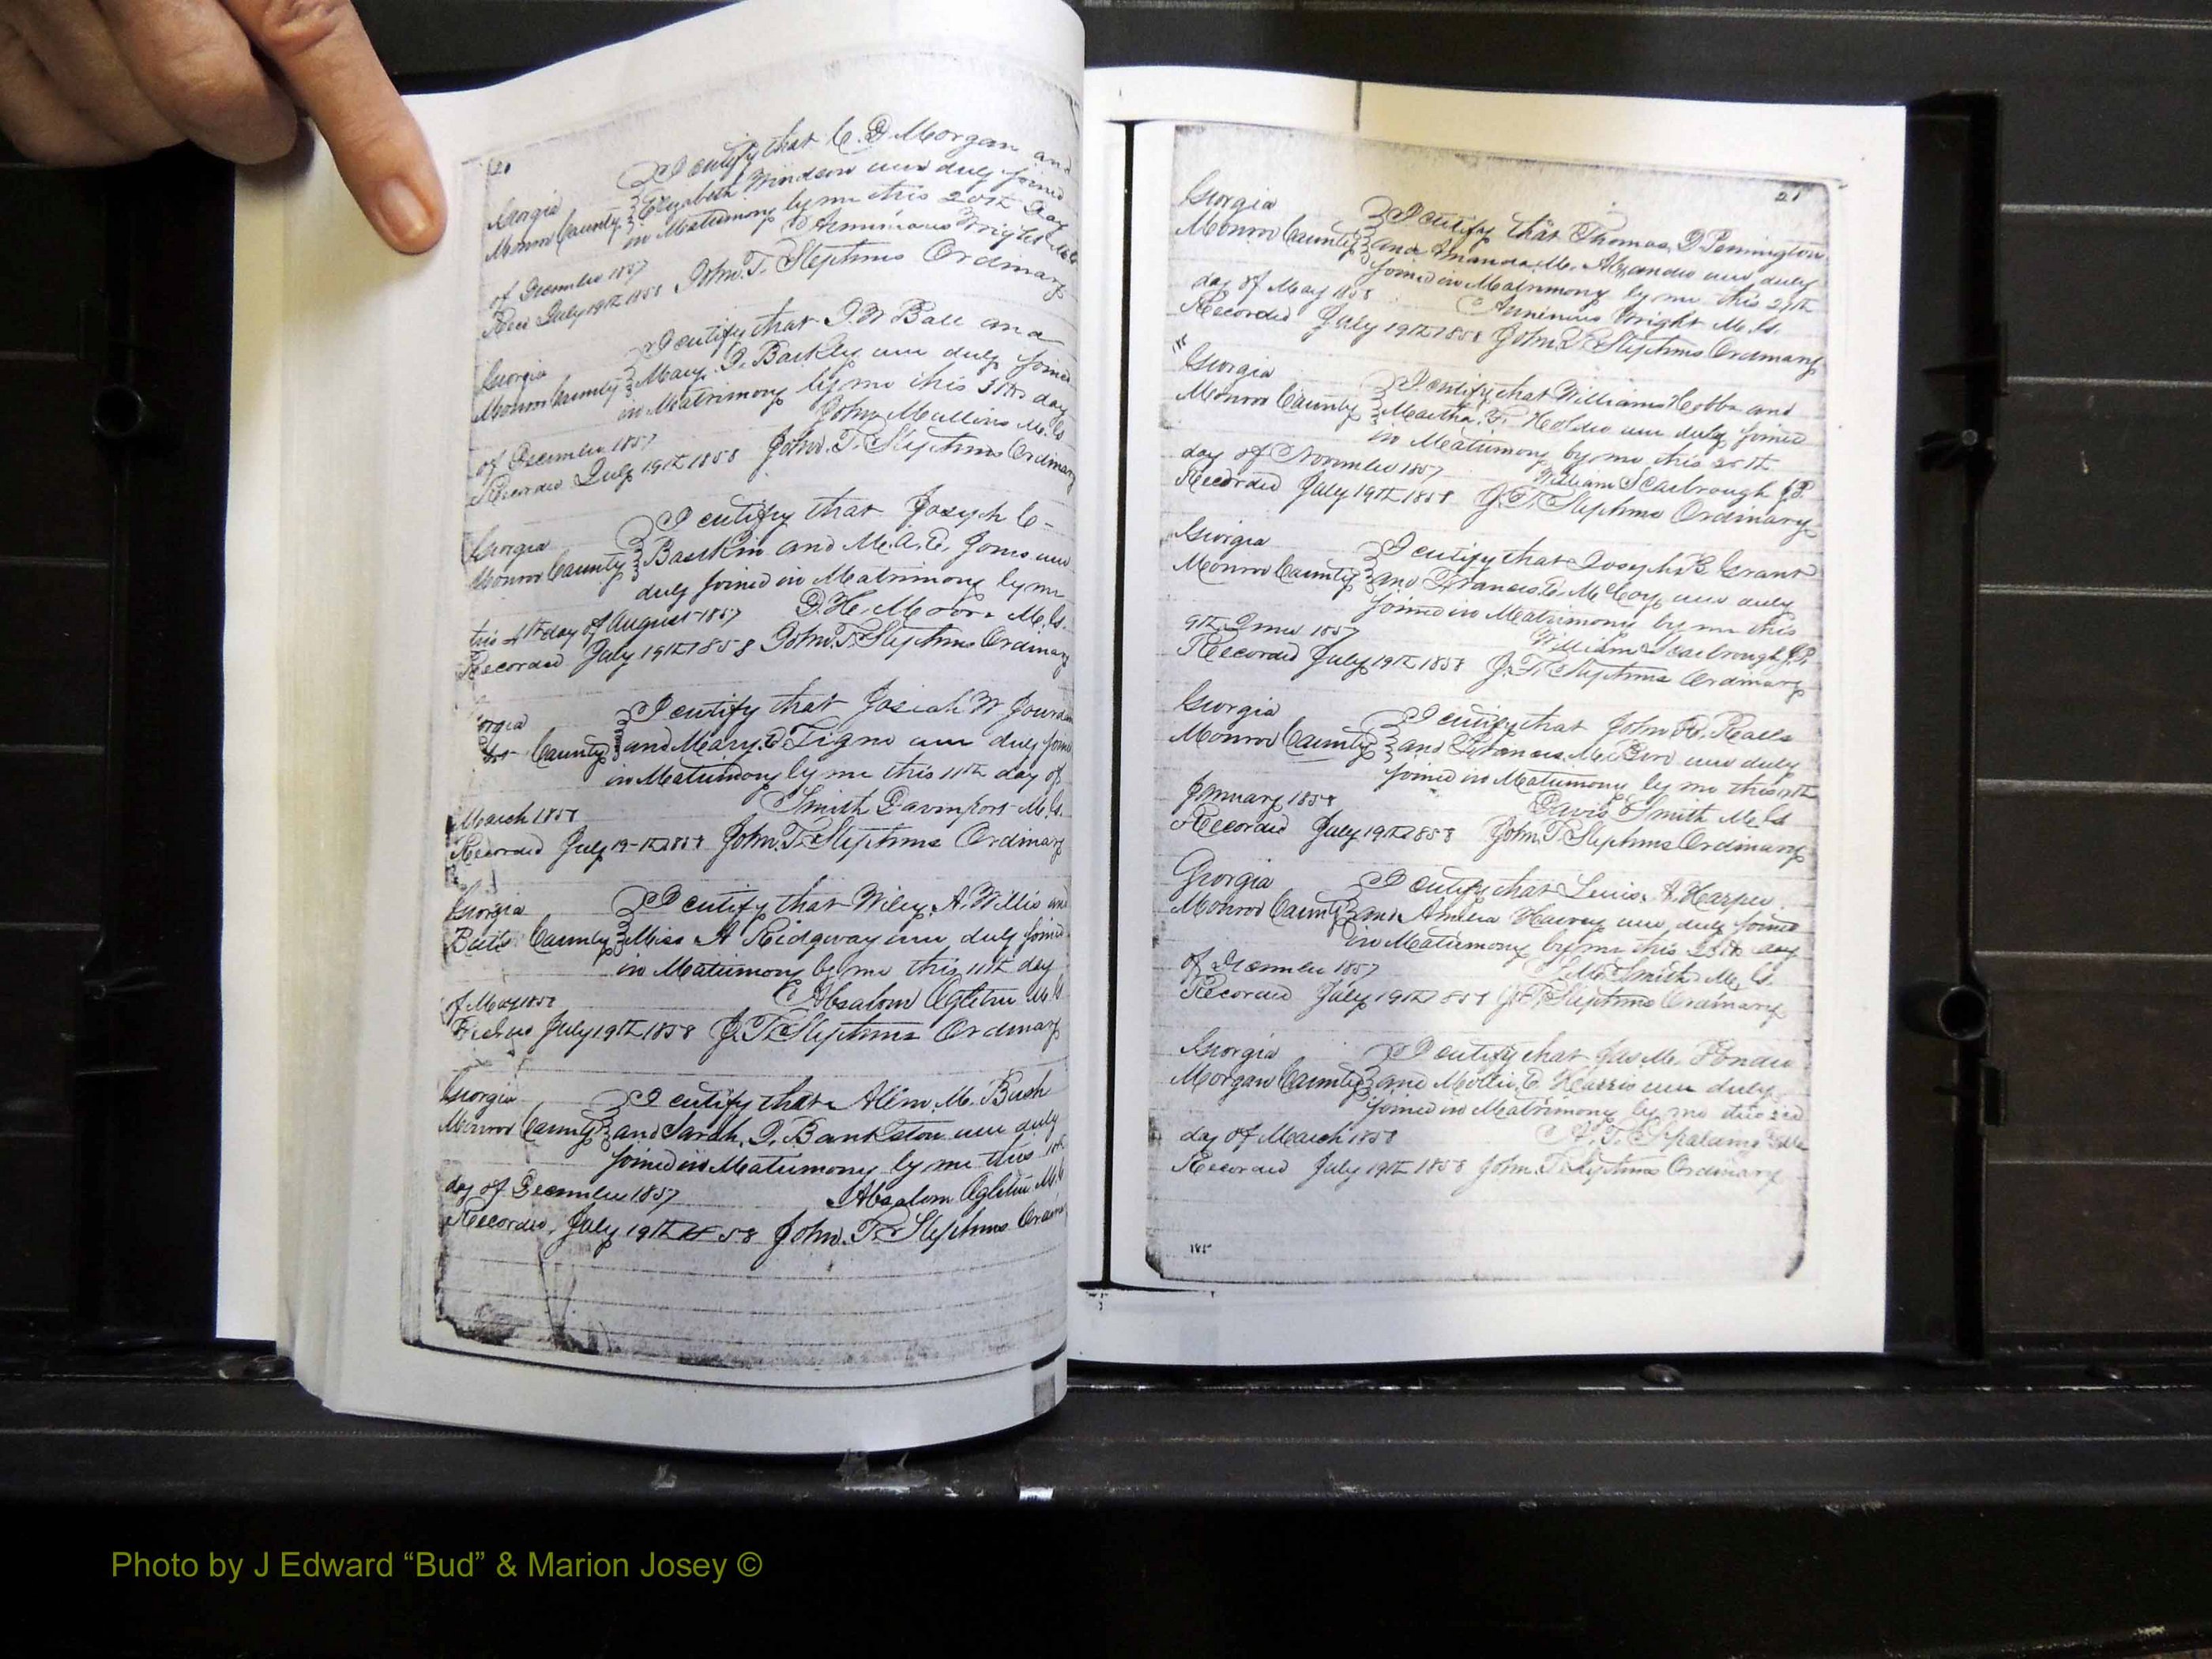 20
I certify that C. D. Morgan and
Georgia
Monroe County Elizabeth Windsor were duly joined
in Matrimony by me this 20th Day
of December 1857 Arminious Wright M.G.
Recd July 19th 1858 John T. Stephens Ordinary
I certify that J. W Ball and
Georgia
Monroe County Mary. J. Barkley were duly joined
in Matrimony by me this 31st day
of December 1857 John Mullins M.G.
Recorded July 19th 1858 John. T. Stephens Ordinary
I certify that Joseph C-
Georgia
Monroe County Baskin and M. A. E. Jones were
duly joined in Matrimony by me
this 4th day of August 1857 D. H. Moore M.G.
Recorded July 19th 1858 John. T. Stephens Ordinary
I certify that Josiah W Jourdan
orgia
County and Mary. E. were duly joined
in Matrimony by me this 11th day of
March 1858 Smith Davenport M.G.
Recorded July 19th 1858 John. T. Stephens Ordinary
Georgia I certify that Wiley. A. Willis and
Butts County Miss A Ridgeway were duly joined
in Matrimony by me this 11th day
of May 1858 Absalom Ogletree M.G.
July 19th 1858 J. T. Stephens Ordinary
Georgia I certify that M. Bush
Monroe County and Sarah. J. Bankston were duly
joined in Matrimony by me this
day of December 1857 Absalom Ogletree M.G.
Recorded. July 19th 58 John. T. Stephens Ordinary
21
Georgia I certify that Thomas. D Pennington
Monroe County and Amanda. M. Alexander were duly
joined in Matrimony by me this 27th
day of May 1858 Arminius Wright M.G.
Recorded July 19th 1858 John. T. Stephens Ordinary
Georgia I certify that William Hobbs and
Monroe County Martha. F. Holder were duly joined
in Matrimony by me this 25th
day of November 1857 William Scarbrough J.P.
Recorded July 19th 1858 J. T. Stephens Ordinary
Georgia I certify that Joseph G Grant
Monroe County and Frances E. McCoy were duly
joined in Matrimony by me this
9th 1857 William Scarbrough J.P.
Recorded July 19th 1858 J. T. Stephens Ordinary
Georgia I certify that John R. Ralls
Monroe County and Frances. M. were duly
joined in Matrimony by me this
January 1858 Davis Smith M.G.
Recorded July 19th 1858 John T. Stephens Ordinary
Georgia I certify that Lewis. A Harper
Monroe County and Amelia Harvey were duly joined
in Matrimony by me this 25th day
of December 1857 Smith M.G.
Recorded July 19th 1858 J. T. Stephens Ordinary
Georgia I certify that Jas M. Ponder
Morgan County and Mollie. E. Harris were duly
joined in Matrimony by me this
day of March 1858
Recorded July 19th 1858 John. T. Stephens Ordinary
185
Photo by J Edward “Bud” & Marion Josey ©